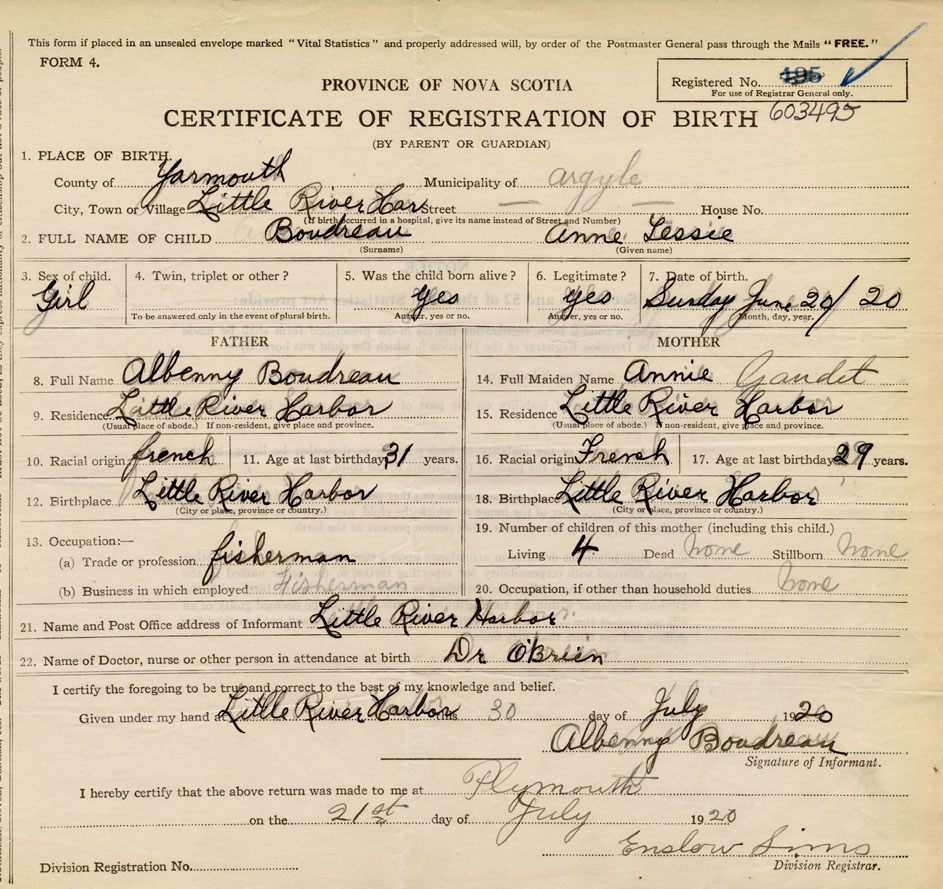 This form if placed in an unsealed envelope marked "Vital Statistics" and properly addressed will, by order of the Postmaster General pass through the Mails "FREE."
FORM 4.
Registered No. 195
For use of Registrar General only.
PROVINCE OF NOVA SCOTIA
603495
CERTIFICATE OF REGISTRATION OF BIRTH
(BY PARENT OR GUARDIAN)
1. PLACE OF BIRTH.
County of Yarmouth Municipality of argyle
City, Town or Village Little River Har Street — — House No.
(If birth occurred in a hospital, give its name instead of Street and Number)
2. FULL NAME OF CHILD Boudreau Anne Lessie
(Surname) (Given name)
3. Sex of child. 4. Twin, triplet or other? 5. Was the child born alive? 6. Legitimate? 7. Date of birth.
Girl Yes Yes Sunday June 20/ 20
To be answered only in the event of plural birth. Answer, yes or no. Answer, yes or no. Month, day, year.
FATHER MOTHER
8. Full Name Albenny Boudreau 14. Full Maiden Name Annie Gaudet
9. Residence Little River Harbor 15. Residence Little River Harbor
(Usual place of abode.) If non-resident, give place and province. (Usual place of abode.) If non-resident, give place and province.
10. Racial origin french 11. Age at last birthday 31 years. 16. Racial origin French 17. Age at last birthday 29 years.
12. Birthplace Little River Harbor 18. Birthplace Little River Harbor
(City or place, province or country.) (City or place, province or country.)
13. Occupation:— 19. Number of children of this mother (including this child.)
(a) Trade or profession fisherman Living 4 Dead None Stillborn None
(b) Business in which employed Fisherman 20. Occupation, if other than household duties. None
21. Name and Post Office address of Informant Little River Harbor
22. Name of Doctor, nurse or other person in attendance at birth Dr O'Brien
I certify the foregoing to be true and correct to the best of my knowledge and belief.
Given under my hand at Little River Harbor this 30 day of July 1920
Albenny Boudreau
Signature of Informant.
I hereby certify that the above return was made to me at Plymouth
on the 21st day of July 1920
Enslow Sims
Division Registration No. Division Registrar.